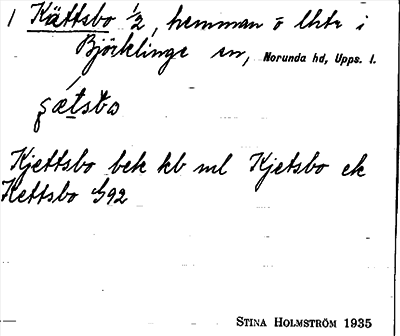 1 Kättsbo 1/2, hemman o lhtr i
Björklinge sn, Norunda hd, Upps. l.
Kjettsbo bek kb ml Kjetsbo ek
Kettsbo G92
STINA HOLMSTRÖM 1935